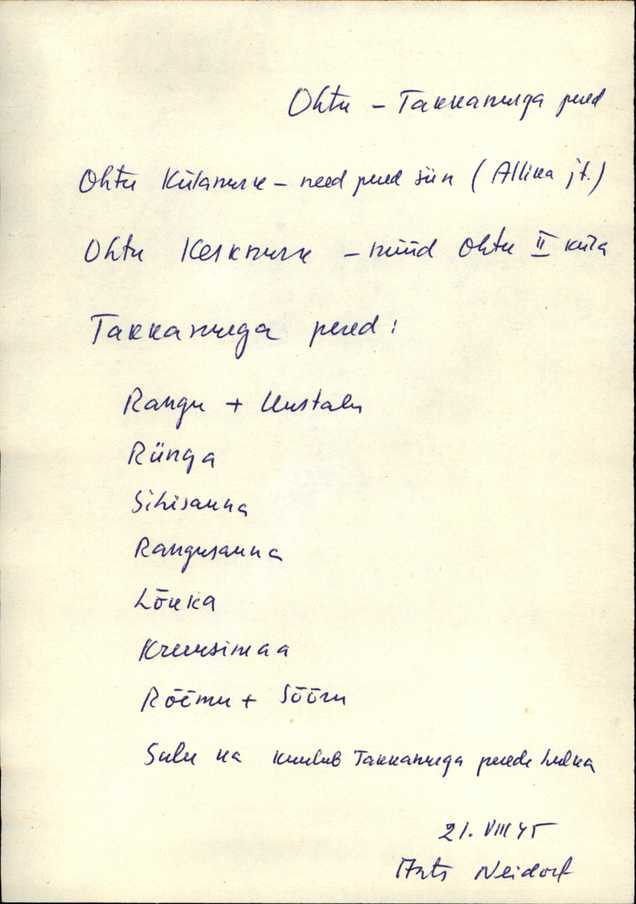 Ohtu – Takkanurga pered
Ohtu Külanurk – need pered siin (Allika jt.)
Ohtu Kesknurk – nüüd Ohtu II küla
Takkanurga pered:
Rangu + Uustalu
Rünga
Sihisauna
Rangusauna
Lõuka
Kreensimaa
Rõõmu + Sõõru
Sulu ka kuulub Takkanurga perede hulka
21. VIII 45
Ants Neidorf